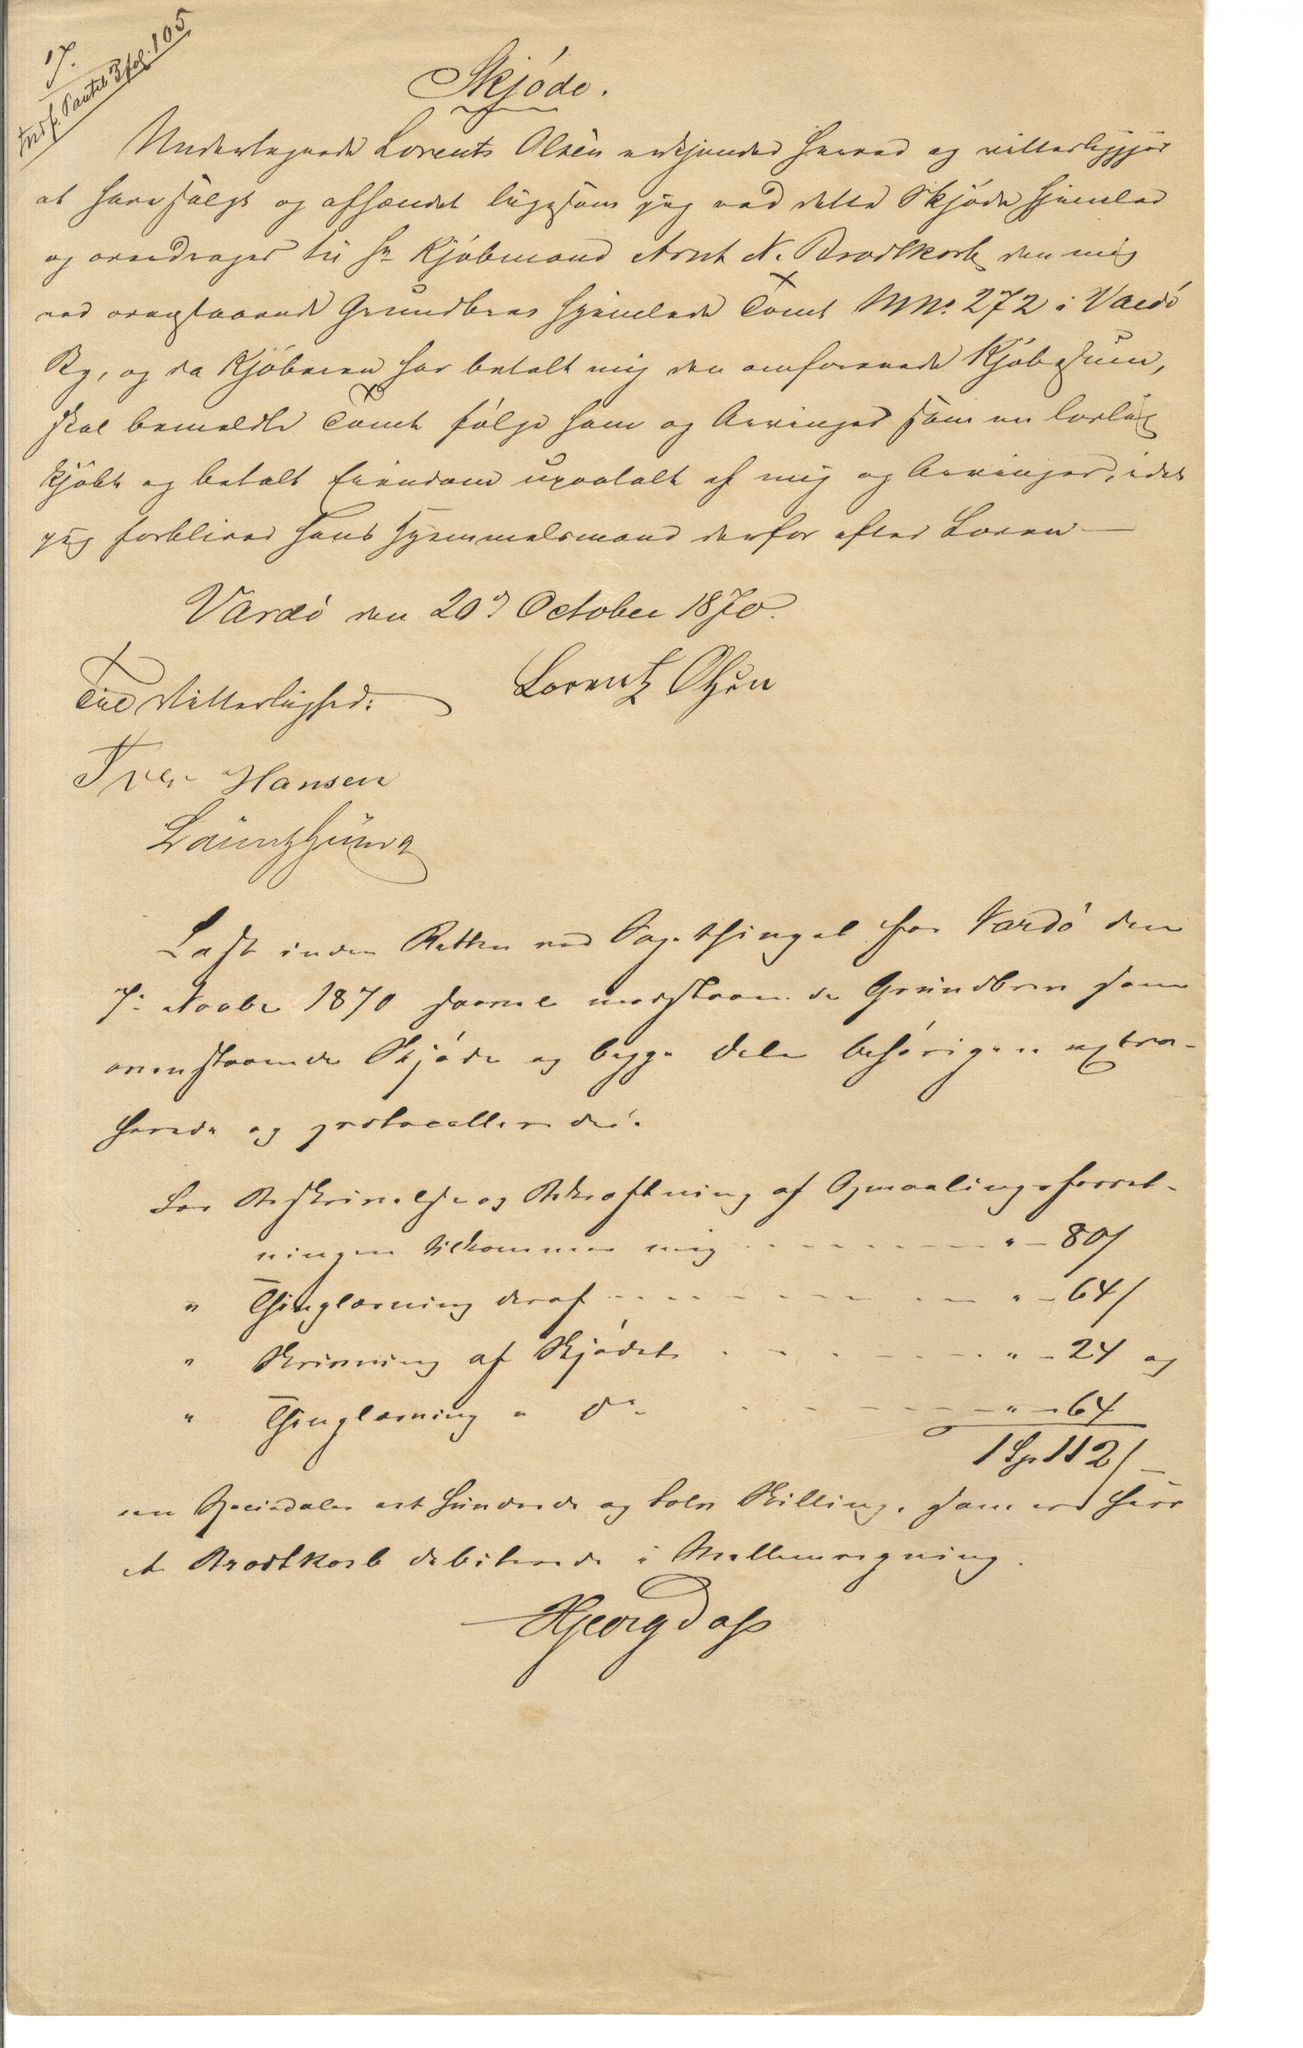 17.
Indf. Panteb. 3 fol. 105
Skjøde.
Undertegnede Lorents Olsen erkjender herved og vitterliggjør
at have solgt og afhændet ligesom jeg ved dette Skjøde hjemler
og overdrager til Hr Kjøbmand Arnt N. Brodtkorb den mig
ved ovenstaaende Grundbrev hjemlede Tomt MNo. 272 i Vardø
By, og da Kjøberen har betalt mig den omforenede Kjøbesum,
skal bemeldte Tomt følge ham og Arvinger som en lovlig
kjøbt og betalt Eiendom upaatalt af mig og Arvinger, idet
jeg forbliver hans Hjemmelsmand derfor efter Loven —
Vardø den 20d October 1870.
Til Vitterlighed: Lorentz Olsen
Iver Hansen
Læst inden Retten ved Sagethinget for Vardø den
7: Novbr 1870 saavel modstaaende Grundbrev som
ovenstaaende Skjøde og begge dele behørigen extra-
herede og protocollerede.
For Beskrivelse og Bekræftning af Opmaalingsforret-
ningen tilkommer mig " - 80/
" Thinglæsning deraf " - 64/
" Skrivning af Skjødet " - 24 og
" Thinglæsning " do " - 64
1 Sp 112/
en Speciedaler et hundrede og tolv Skilling, som er Herr
A. Brodtkorb debiterede i Mellemregning.
HGeorg Dass